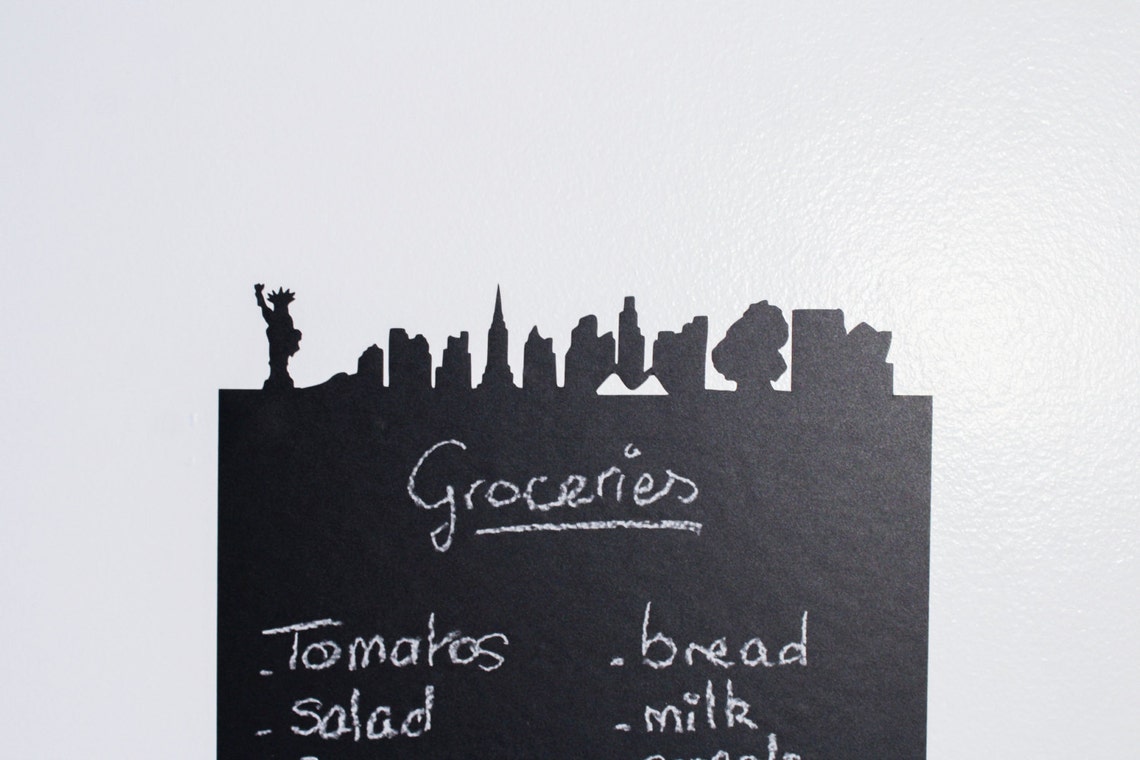 Groceries
- Tomatos
- salad
- bread
- milk